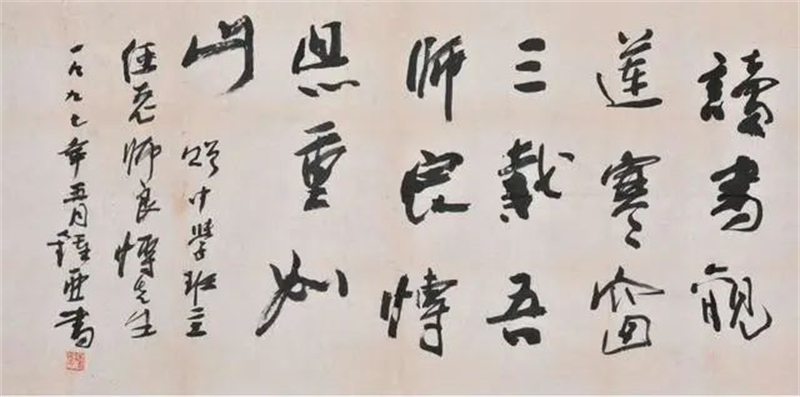 讀書觀
蓮寒窗
三載吾
師良愽
恩重如
山
贈中學班主
任師良愽先生
一九九七年五月鍾亜書